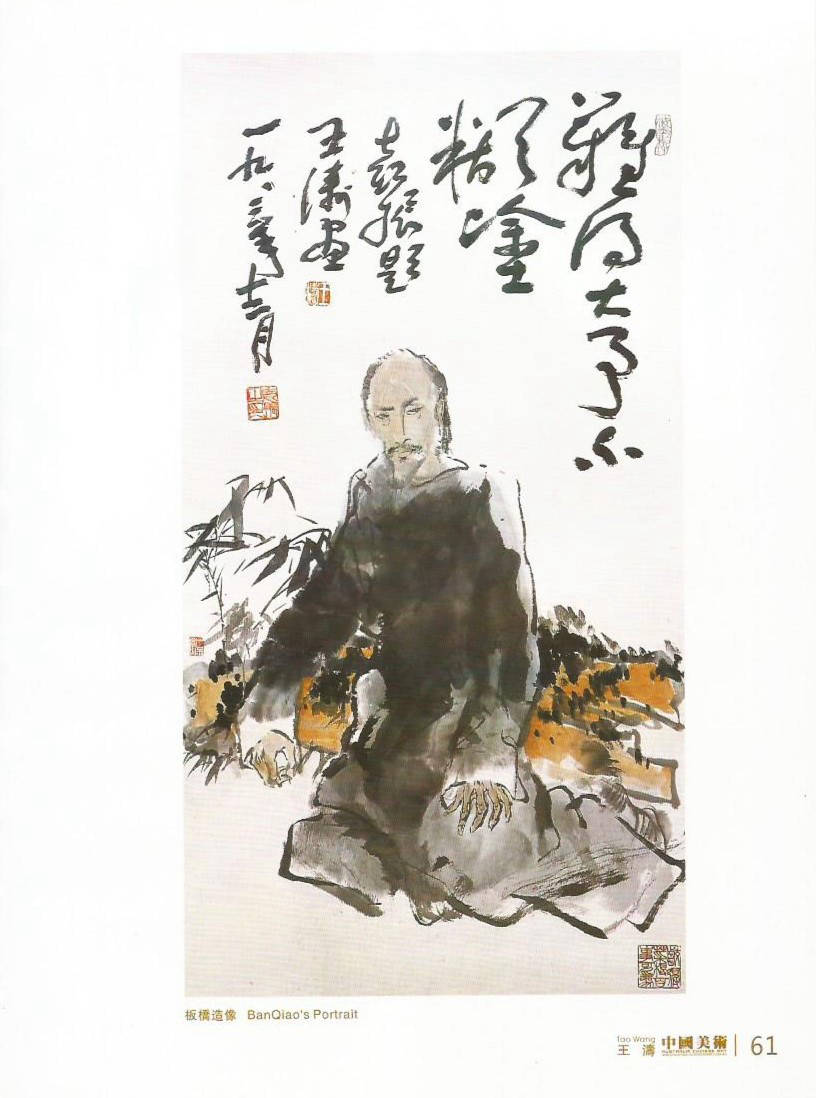 難得大事不
糊塗
袁振題
王濤畫
一九八三年十二月
板橋造像 BanQiao's Portrait
Tao Wang
王 濤 中國美術 61
AUSTRALIA CHINESE ART